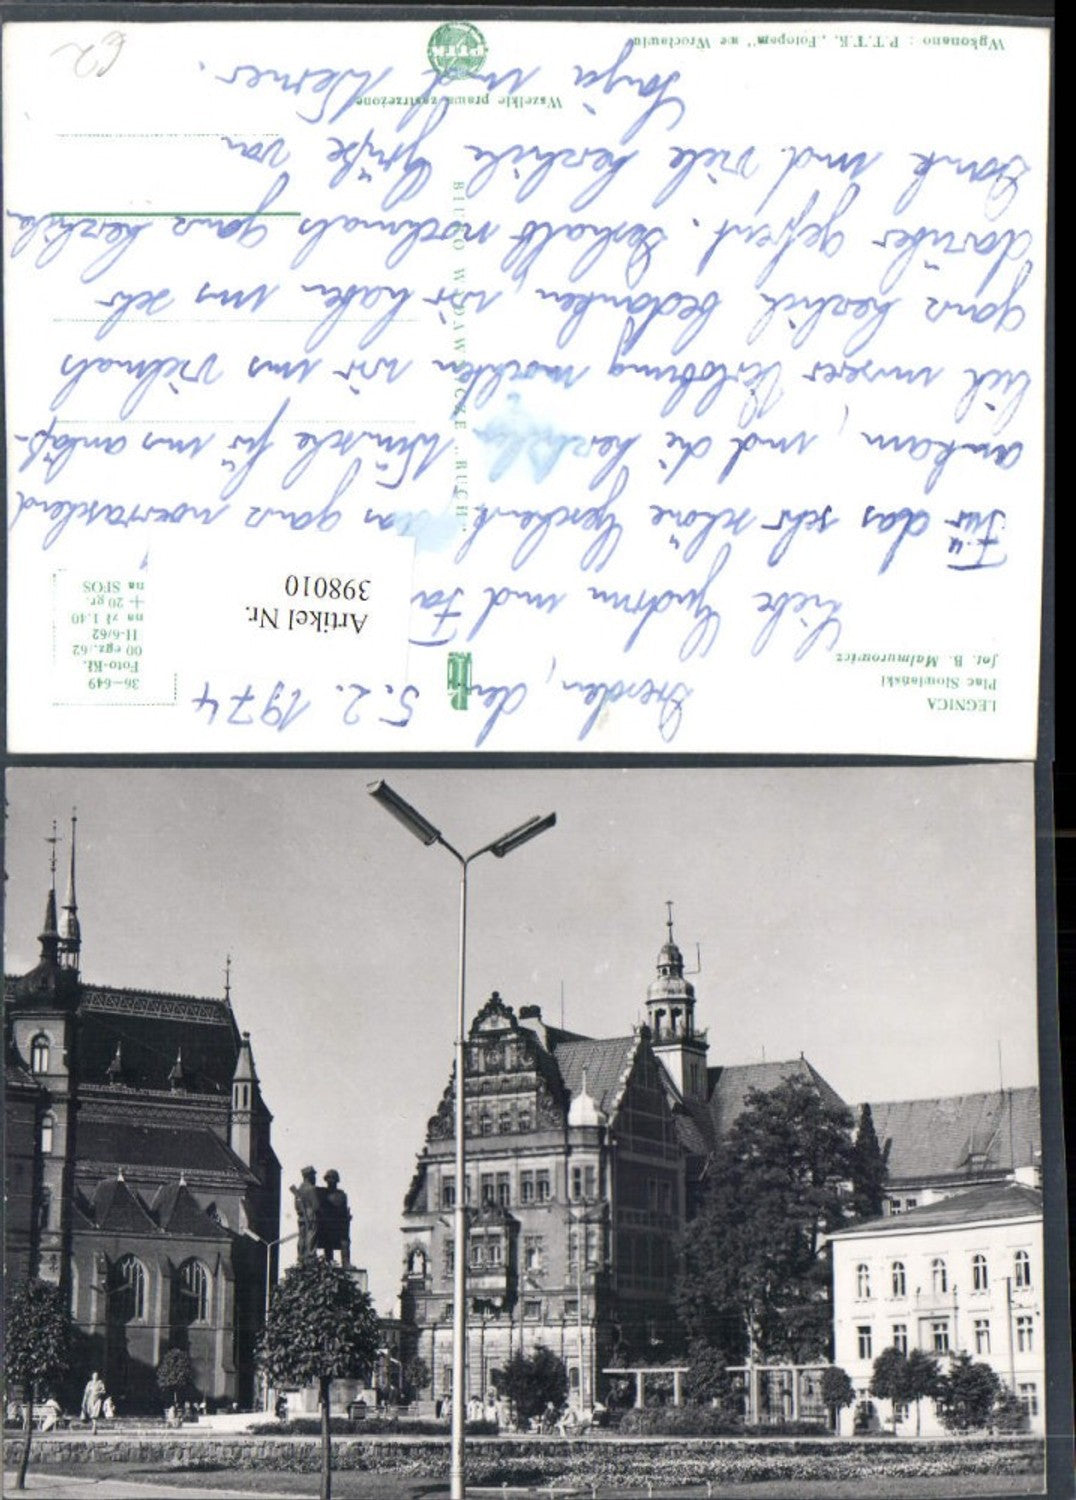 LEGNICA
Plac Słowiański
fot. B. Małmurowicz
36—649
Foto-Kł.
00 egz./62
H-6/62
na zł 1.40
+ 20 gr.
na SFOS
Artikel Nr.
398010
Dresden, den 5.2.1974
Liebe Gudrun und Fa
Für das sehr schöne Geschenk, das ganz überraschend
ankam, und die herzlichen Wünsche für uns anläß-
lich unserer Verlobung möchten wir uns vielmals
ganz herzlich bedanken, wir haben uns sehr
darüber gefreut. Deshalb nochmals ganz herzlichen
Dank und viele herzliche Grüße von
und Werner.
BIURO WYDAWNICZE „RUCH"
Wszelkie prawa zastrzeżone
PTTK
Wykonano: P.T.T.K. „Fotopam" we Wrocławiu